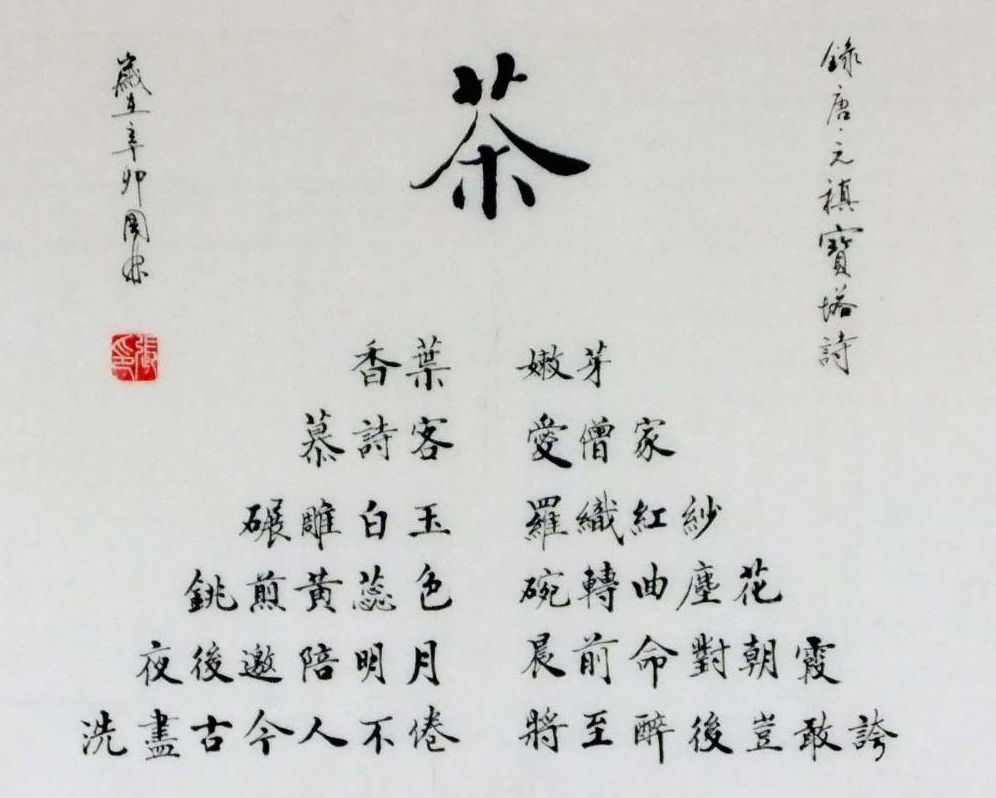 茶
香葉 嫩芽
慕詩客 愛僧家
碾雕白玉 羅織紅紗
銚煎黃蕊色 碗轉曲塵花
夜後邀陪明月 晨前命對朝霞
洗盡古今人不倦 將至醉後豈敢誇
錄唐·元稹寶塔詩
歲在辛卯國林